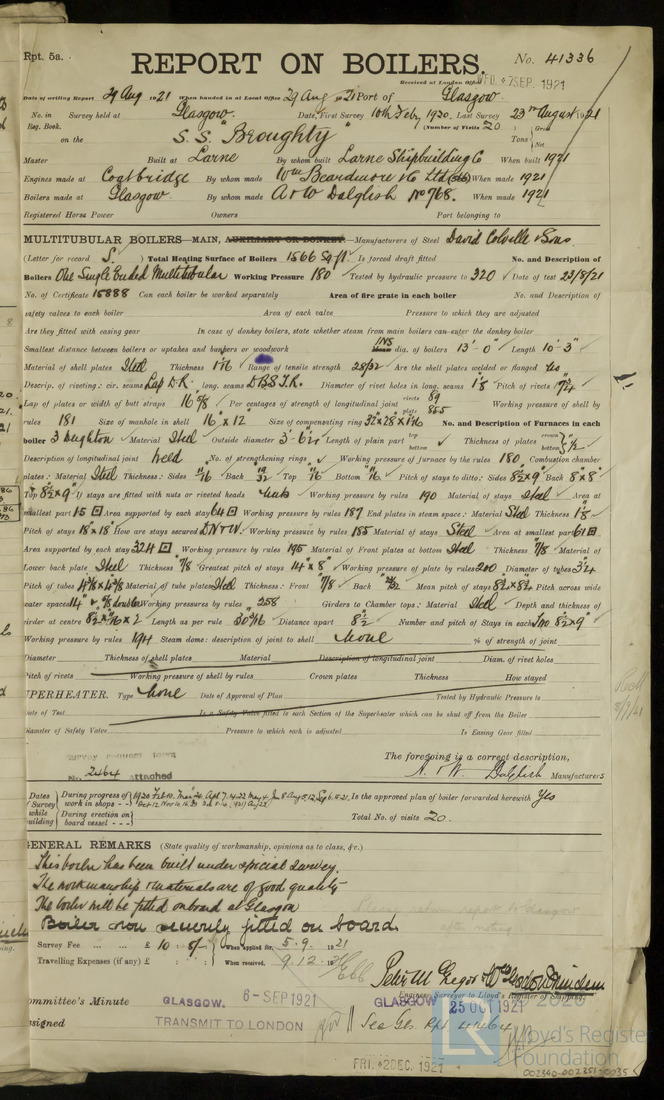 Rpt. 5a.
REPORT ON BOILERS.
No. 41336
Received at London Office WED. 7 SEP. 1921
Date of writing Report 29 Aug 1921 When handed in at Local Office 29 Aug 1921 Port of Glasgow
No. in Survey held at Glasgow Date, First Survey 10th Feby 1920 Last Survey 23rd August 1921
Reg. Book. (Number of Visits 20) Gross
on the S.S. "Broughty" Tons Net
Master Built at Larne By whom built Larne Shipbuilding Co When built 1921
Engines made at Coatbridge By whom made Wm Beardmore & Co Ltd When made 1921
Boilers made at Glasgow By whom made A & W Dalglish No 768. When made 1921
Registered Horse Power Owners Port belonging to
MULTITUBULAR BOILERS—MAIN, AUXILIARY OR DONKEY.—Manufacturers of Steel David Colville & Sons
(Letter for record S.) Total Heating Surface of Boilers 1566 Sq ft Is forced draft fitted No. and Description of
Boilers One Single Ended Multitubular Working Pressure 180 Tested by hydraulic pressure to 320 Date of test 23/8/21
No. of Certificate 15888 Can each boiler be worked separately Area of fire grate in each boiler No. and Description of
safety valves to each boiler Area of each valve Pressure to which they are adjusted
Are they fitted with easing gear In case of donkey boilers, state whether steam from main boilers can enter the donkey boiler
Smallest distance between boilers or uptakes and bunkers or woodwork INS dia. of boilers 13'-0" Length 10'-3"
Material of shell plates Steel Thickness Range of tensile strength 28/32 Are the shell plates welded or flanged No
Descrip. of riveting: cir. seams Lap D.R. long. seams D.B.S.T.R. Diameter of rivet holes in long. seams 1 1/8 Pitch of rivets
Lap of plates or width of butt straps Per centages of strength of longitudinal joint rivets 89 plate 85.5 Working pressure of shell by
rules 181 Size of manhole in shell 16" x 12" Size of compensating ring No. and Description of Furnaces in each
boiler 3 Deighton Material Steel Outside diameter Length of plain part top bottom Thickness of plates crown bottom
Description of longitudinal joint Weld No. of strengthening rings Working pressure of furnace by the rules 180 Combustion chamber
plates: Material Steel Thickness: Sides 11/16 Back Top 11/16 Bottom 11/16 Pitch of stays to ditto: Sides 8½ x 9" Back 8" x 8"
Top 8½ x 9" If stays are fitted with nuts or riveted heads nuts Working pressure by rules 190 Material of stays Steel Area at
smallest part Area supported by each stay Working pressure by rules 187 End plates in steam space: Material Steel Thickness 1 1/8
Pitch of stays 18" x 18" How are stays secured D.N.&W. Working pressure by rules 185 Material of stays Steel Area at smallest part
Area supported by each stay 324 Working pressure by rules 195 Material of Front plates at bottom Steel Thickness 7/8 Material of
Lower back plate Steel Thickness 7/8 Greatest pitch of stays 14" x 8" Working pressure of plate by rules 200 Diameter of tubes 3¼
Pitch of tubes Material of tube plates Steel Thickness: Front 7/8 Back Mean pitch of stays Pitch across wide
water spaces 14" Working pressures by rules 258 Girders to Chamber tops: Material Steel Depth and thickness of
girder at centre Length as per rule Distance apart 8½ Number and pitch of Stays in each Two 8½ x 9"
Working pressure by rules 194 Steam dome: description of joint to shell None % of strength of joint
Diameter Thickness of shell plates Material Description of longitudinal joint Diam. of rivet holes
Pitch of rivets Working pressure of shell by rules Crown plates Thickness How stayed
UPERHEATER. Type None Date of Approval of Plan Tested by Hydraulic Pressure to
Date of Test Is a Safety Valve fitted to each Section of the Superheater which can be shut off from the Boiler
Diameter of Safety Valve Pressure to which each is adjusted Is Easing Gear fitted
SURVEY REQUEST FORM
No. 2464 attached
The foregoing is a correct description,
A. & W. Dalglish Manufacturers
Dates of Survey while building
During progress of work in shops - -
Is the approved plan of boiler forwarded herewith Yes
During erection on board vessel - - -
Total No. of visits 20.
GENERAL REMARKS (State quality of workmanship, opinions as to class, &c.)
This boiler has been built under special survey.
The workmanship & materials are of good quality
The boiler will be fitted onboard at Glasgow
Boiler now securely fitted on board.
Survey Fee £ 10 : 5/- When applied for, 5.9.1921
Travelling Expenses (if any) £ When received, 9.12.
Engineer Surveyor to Lloyd's Register of Shipping.
Committee's Minute GLASGOW. 6-SEP 1921 GLASGOW 25 OCT 1921
Assigned TRANSMIT TO LONDON See Gls. Rpt
FRI. 2 DEC. 1921
© 2026
Lloyd's Register
Foundation
002340-002351-0035